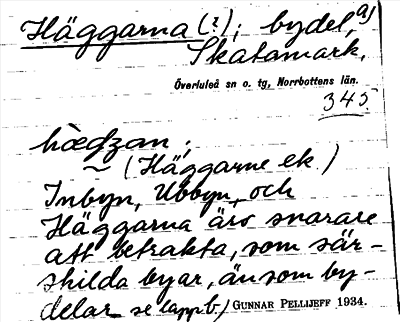 Häggarna (?); bydel, a)
Skatamark,
Överluleå sn o. tg, Norrbottens län.
345
hædzan;
~ (Häggarne ek.)
Inbyn, Ubbyn, och
Häggarna äro snarare
att betrakta, som sär-
skilda byar, än som by-
delar se lapp b) GUNNAR PELLIJEFF 1934.